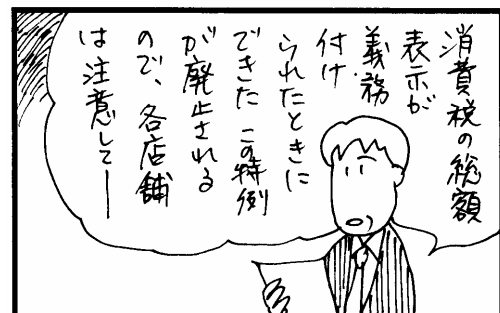 消費税の総額
表示が
義務
付け
られたときに
できた この特例
が廃止される
ので、各店舗
は注意して―